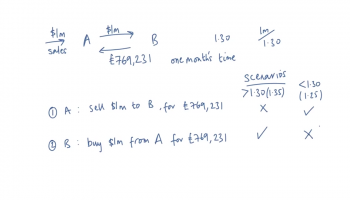 $1m
sales
A
$1m
B
£769,231
one month's time
1.30
1m
1.30
scenarios
>1.30 (1.35)
<1.30
(1.25)
① A : sell $1m to B for £769,231 x ✓
② B : buy $1m from A for £769,231 ✓ x